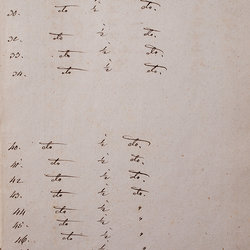 30. do ½ do.
32. do ½ do.
33. do ½ do.
34. do ½ do.
40. do ½ do.
41. do ½ do.
42. do ½ do
43. do ½ do
44 do ½ "
45. do ½ "
46. do ½ "